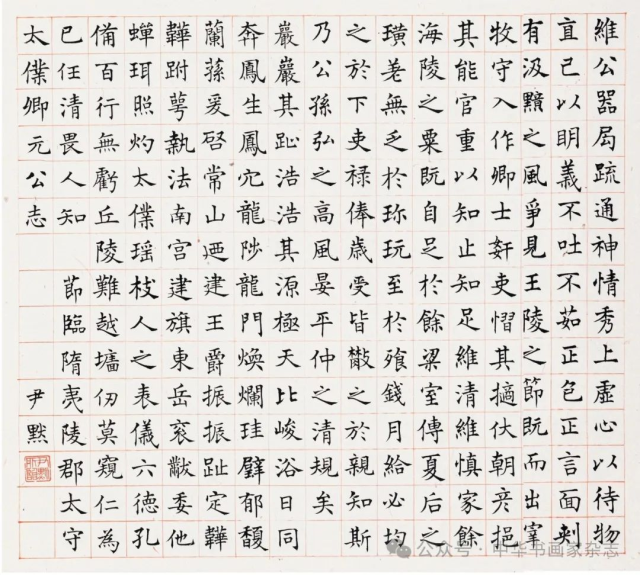 維公器局疏通神情秀上虛心以待物
直己以明義不吐不茹正色正言面刾
有汲黯之風爭見王陵之節既而出宰
牧守入作卿士姧吏慴其擿伏朝彦挹
其能官重以知止知足維清維慎家餘
海陵之粟既自足於餘梁室傳夏后之
璜羌無乏於珎玩至於飡錢月給必均
之於下吏禄俸歲受皆散之於親知斯
乃公孫弘之高風晏平仲之清規矣
巖巖其趾浩浩其源極天比峻浴日同
奔鳳生鳳穴龍陟龍門煥爛珪璧郁馥
蘭蓀爰啓常山廼建王爵振振趾定韡
韡跗萼執法南宫建旗東岳衮黻委他
蟬珥照灼太僕瑶枝人之表儀六德孔
備百行無虧丘陵難越墻仞莫窺仁為
已任清畏人知 節臨隋夷陵郡太守
太僕卿元公志 尹默
公众号·中华书画家杂志